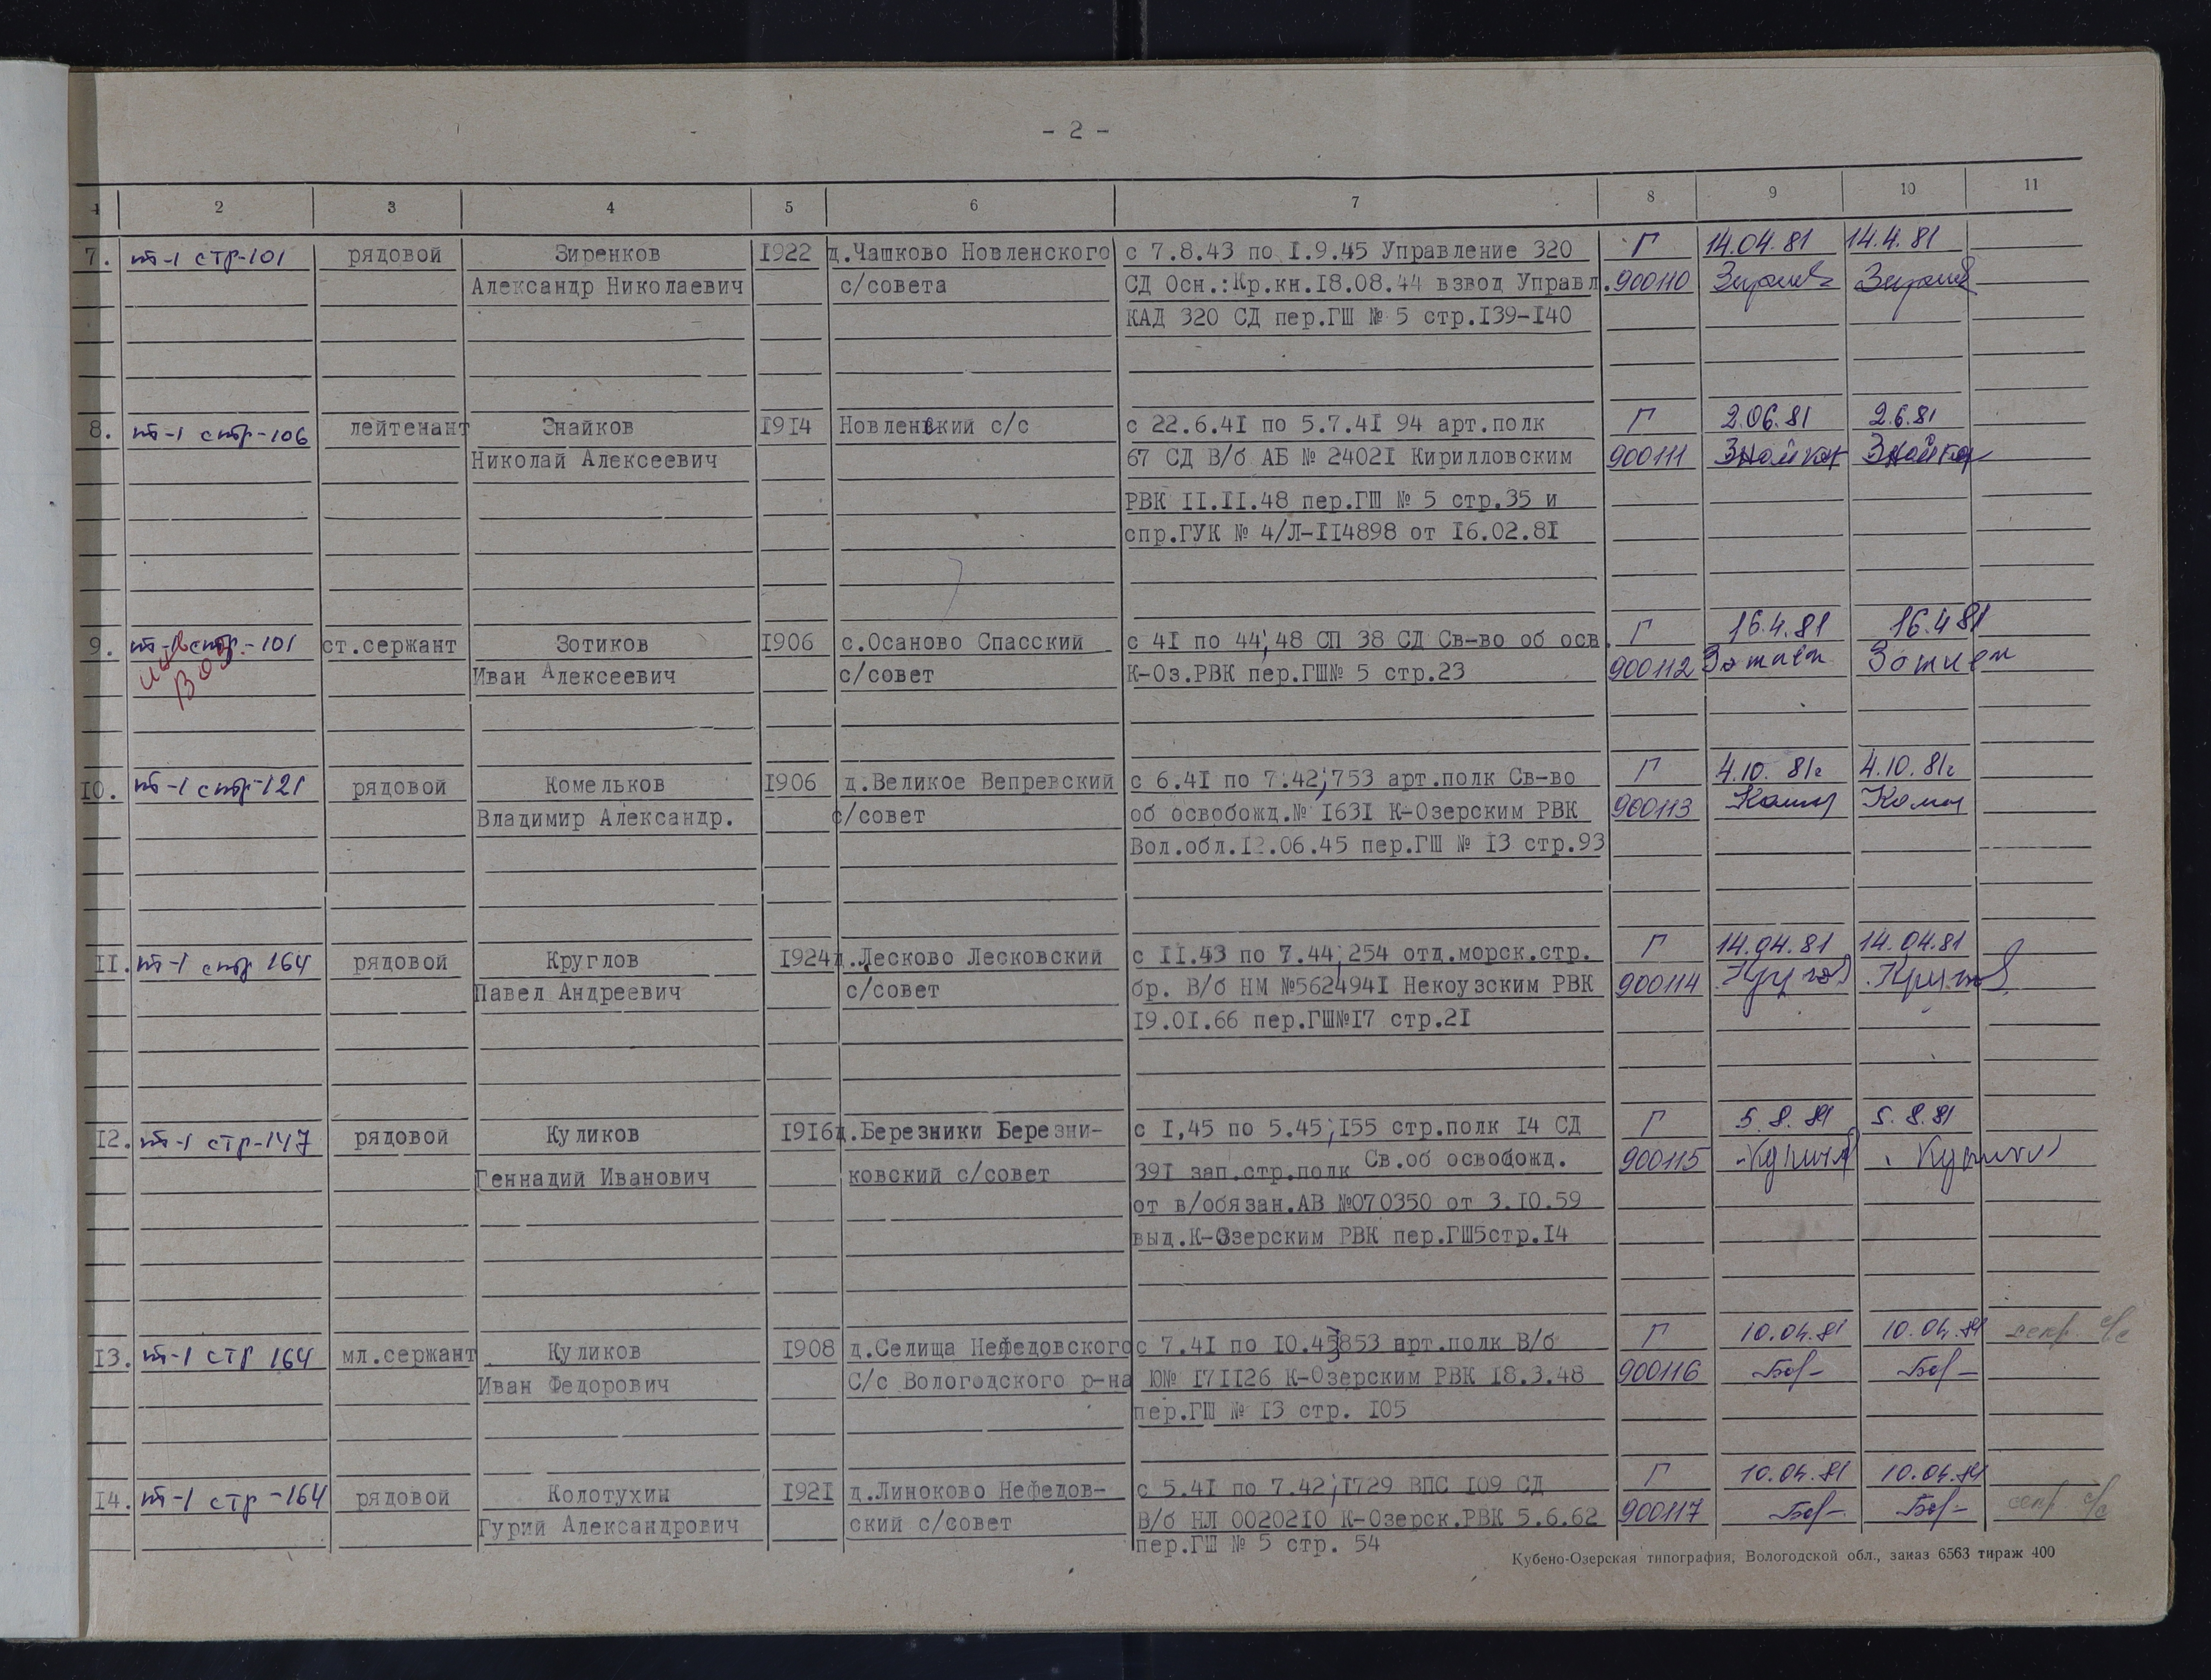 - 2 -
1 2 3 4 5 6 7 8 9 10 11
7. пб-1 стр-101 рядовой Зиренков 1922 д.Чашково Новленского с 7.8.43 по I.9.45 Управление 320 Г 14.04.81 14.4.81
Александр Николаевич с/совета СД Осн.:Кр.кн.I8.08.44 взвод Управл. 900110
КАД 320 СД пер.ГШ № 5 стр.I39-I40
8. пб-1 стр-106 лейтенант Знайков I9I4 Новленский с/с с 22.6.4I по 5.7.4I 94 арт.полк Г 2.06.81 2.6.81
Николай Алексеевич 67 СД В/б АБ № 2402I Кирилловским 900111 Знайков Знайков
РВК II.II.48 пер.ГШ № 5 стр.35 и
спр.ГУК № 4/Л-II4898 от I6.02.8I
9. пб-1 стр.-101 ст.сержант Зотиков I906 с.Осаново Спасский с 4I по 44;48 СП 38 СД Св-во об осв. Г 16.4.81 16.4 81
Иван Алексеевич с/совет К-Оз.РВК пер.ГШ№ 5 стр.23 900112
10. пб-1 стр-121 рядовой Комельков I906 д.Великое Вепревский с 6.4I по 7.42;753 арт.полк Св-во Г 4.10. 81г 4.10. 81г
Владимир Александр. с/совет об освобожд.№ I63I К-Озерским РВК 900113
Вол.обл.I2.06.45 пер.ГШ № I3 стр.93
II. пб-1 стр 164 рядовой Круглов I924 д.Лесково Лесковский с II.43 по 7.44;254 отд.морск.стр. Г 14.04.81 14.04.81
Павел Андреевич с/совет бр. В/б НМ №562494I Некоузским РВК 900114 Круглов Круглов
I9.0I.66 пер.ГШ№I7 стр.2I
I2. пб-1 стр-147 рядовой Куликов I9I6 д.Березники Березни- с I,45 по 5.45;I55 стр.полк I4 СД Г 5.8.81 5.8.81
Геннадий Иванович ковский с/совет 39I зап.стр.полк Св.об освобожд. 900115 Куликов
от в/обязан.АВ №070350 от 3.I0.59
выд.К-Озерским РВК пер.ГШ5стр.I4
I3. пб-1 стр 164 мл.сержант Куликов I908 д.Селища Нефедовского с 7.4I по I0.45;853 арт.полк В/б Г 10.04.81 10.04.81 секр с/с
Иван Федорович С/с Вологодского р-на Ю№ I7II26 К-Озерским РВК I8.3.48 900116
пер.ГШ № I3 стр. I05
I4. пб-1 стр-164 рядовой Колотухин I92I д.Линоково Нефедов- с 5.4I по 7.42;I729 ВПС I09 СД Г 10.04.81 10.04.81
Гурий Александрович ский с/совет В/б НЛ 00202I0 К-Озерск.РВК 5.6.62 900117 секр с/с
пер.ГШ № 5 стр. 54
Кубено-Озерская типография, Вологодской обл., заказ 6563 тираж 400